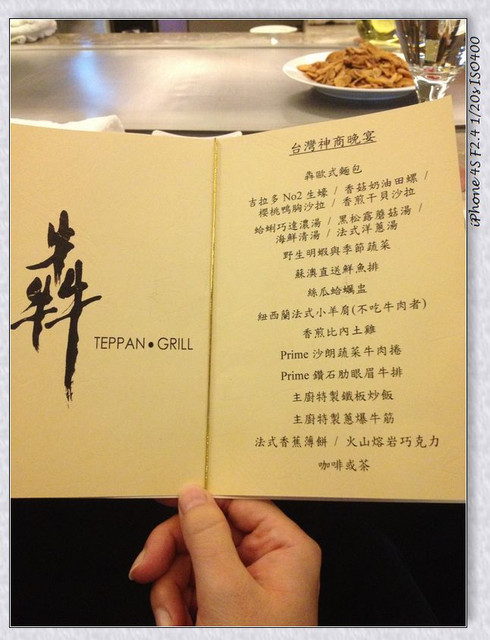 犇
TEPPAN●GRILL
台灣神商晚宴
犇歐式麵包
吉拉多 No2 生蠔 / 香菇奶油田螺 /
櫻桃鴨胸沙拉 / 香煎干貝沙拉
蛤蜊巧達濃湯 / 黑松露蘑菇湯 /
海鮮清湯 / 法式洋蔥湯
野生明蝦與季節蔬菜
蘇澳直送鮮魚排
絲瓜蛤蠣盅
紐西蘭法式小羊肩(不吃牛肉者)
香煎比內土雞
Prime 沙朗蔬菜牛肉捲
Prime 鑽石肋眼眉牛排
主廚特製鐵板炒飯
主廚特製蔥爆牛筋
法式香蕉薄餅 / 火山熔岩巧克力
咖啡或茶
iPhone 4S F2.4 1/20s ISO400